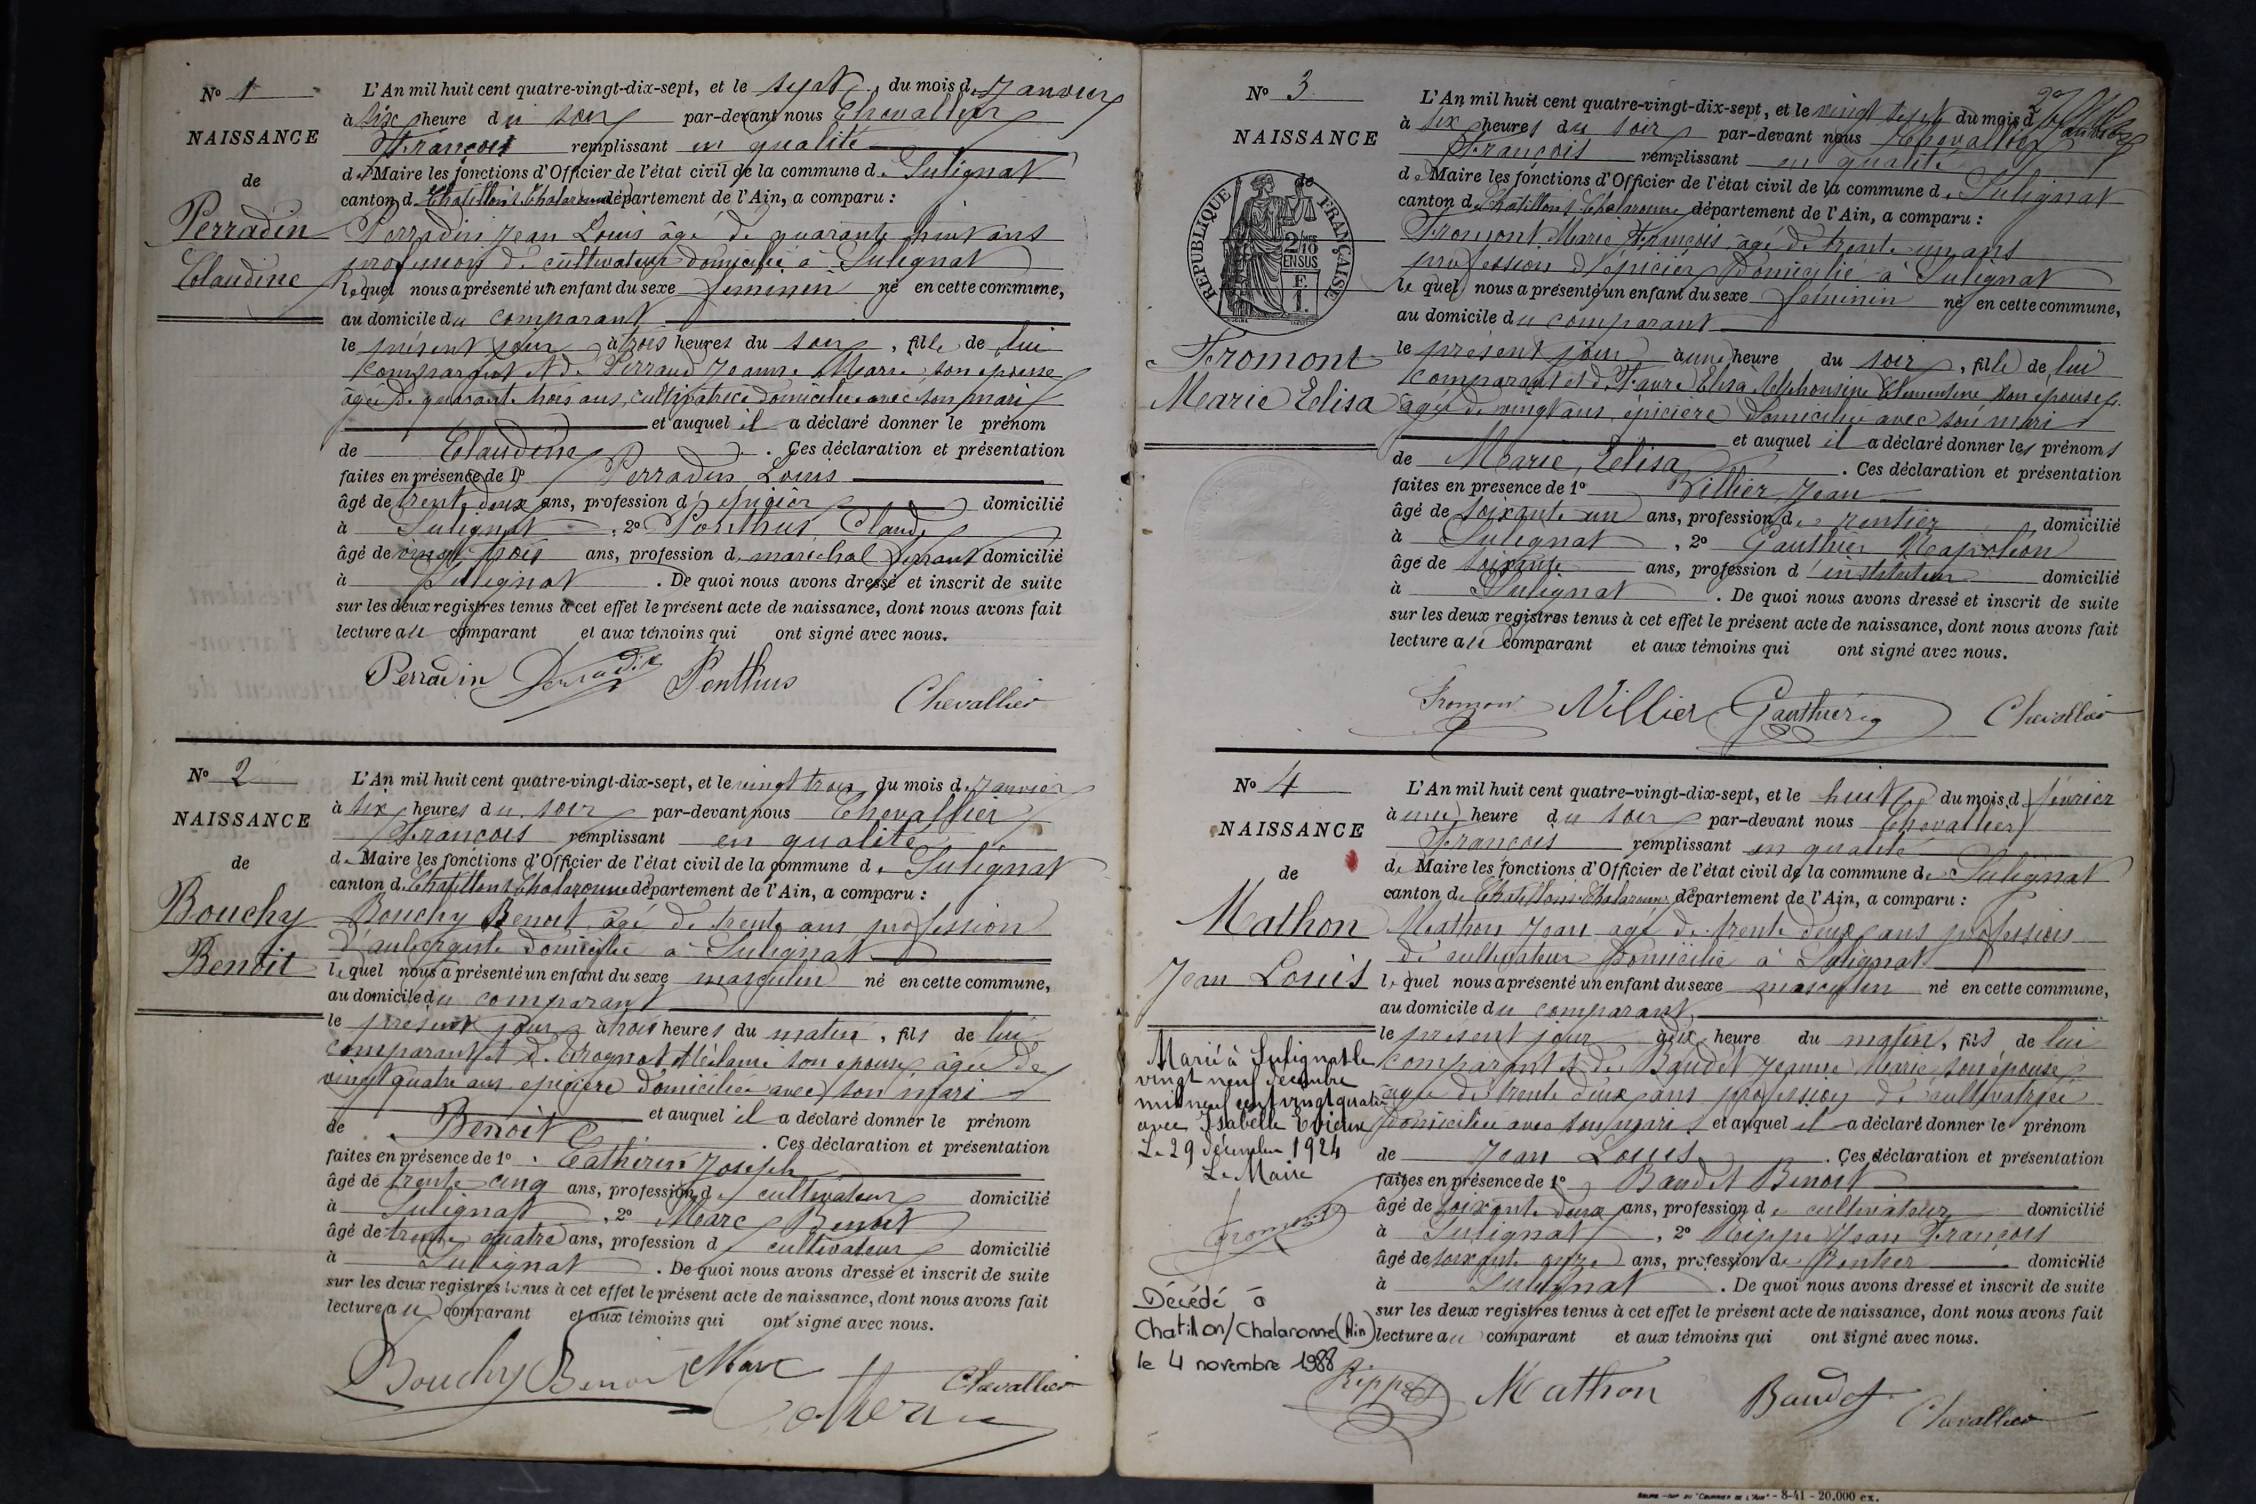 N° 1
NAISSANCE
de
Perradin
Claudine
L'An mil huit cent quatre-vingt-dix-sept, et le sept du mois de Janvier
à six heure du soir par-devant nous Chevallier
François remplissant en qualité
de Maire les fonctions d'Officier de l'état civil de la commune de Sulignat
canton de Chatillon s Chalaronne département de l'Ain, a comparu :
Perradin Jean Louis âgé de quarante huit ans
profession de cultivateur domicilié à Sulignat
lequel nous a présenté un enfant du sexe feminin né en cette commune,
au domicile du comparant
le présent jour à trois heures du soir, fille de lui
comparant et de Perraud Jeanne Marie son épouse
âgée de quarante trois ans, cultivatrice domiciliée avec son mari
et auquel il a déclaré donner le prénom
de Claudine. Ces déclaration et présentation
faites en présence de 1° Perradin Louis
âgé de trente deux ans, profession d'épicier domicilié
à Sulignat, 2° Ponthus Claude
âgé de vingt trois ans, profession de maréchal ferrant domicilié
à Sulignat. De quoi nous avons dressé et inscrit de suite
sur les deux registres tenus à cet effet le présent acte de naissance, dont nous avons fait
lecture au comparant et aux témoins qui ont signé avec nous.
Perradin Perradin Ponthus
Chevallier
N° 2
NAISSANCE
de
Bouchy
Benoit
L'An mil huit cent quatre-vingt-dix-sept, et le vingt trois du mois de Janvier
à six heures du soir par-devant nous Chevallier
François remplissant en qualité
de Maire les fonctions d'Officier de l'état civil de la commune de Sulignat
canton de Chatillon s Chalaronne département de l'Ain, a comparu :
Bouchy Benoit âgé de trente ans profession
d'aubergiste domicilié à Sulignat
lequel nous a présenté un enfant du sexe masculin né en cette commune,
au domicile du comparant
le présent jour à trois heures du matin, fils de lui
comparant et de son épouse, âgée de
vingt quatre ans épicière domiciliée avec son mari
et auquel il a déclaré donner le prénom
de Benoit. Ces déclaration et présentation
faites en présence de 1° Catherin Joseph
âgé de trente cinq ans, profession de cultivateur domicilié
à Sulignat, 2° Marc Benoit
âgé de trente quatre ans, profession de cultivateur domicilié
à Sulignat. De quoi nous avons dressé et inscrit de suite
sur les deux registres tenus à cet effet le présent acte de naissance, dont nous avons fait
lecture au comparant et aux témoins qui ont signé avec nous.
Bouchy Benoit Marc
Catherin
Chevallier
N° 3
NAISSANCE
de
RÉPUBLIQUE FRANÇAISE
2/10
EN SUS
Fromont
Marie Elisa
L'An mil huit cent quatre-vingt-dix-sept, et le vingt sept du mois de Janvier
à six heures du soir par-devant nous Chevallier
François remplissant en qualité
de Maire les fonctions d'Officier de l'état civil de la commune de Sulignat
canton de Chatillon s Chalaronne département de l'Ain, a comparu :
Fromont Marie François âgé de trente un ans
profession d'épicier domicilié à Sulignat
lequel nous a présenté un enfant du sexe féminin né en cette commune,
au domicile du comparant
le présent jour à une heure du soir, fille de lui
comparant et de Faure Elisa Alphonsine Clémentine son épouse
âgée de vingt ans, épicière domiciliée avec son mari
et auquel il a déclaré donner les prénoms
de Marie Elisa. Ces déclaration et présentation
faites en présence de 1° Villier Jean
âgé de soixante un ans, profession de rentier domicilié
à Sulignat, 2° Gauthier Napoléon
âgé de soixante ans, profession d'instituteur domicilié
à Sulignat. De quoi nous avons dressé et inscrit de suite
sur les deux registres tenus à cet effet le présent acte de naissance, dont nous avons fait
lecture au comparant et aux témoins qui ont signé avec nous.
Fromont Villier Gauthier Chevallier
N° 4
NAISSANCE
de
Mathon
Jean Louis
Marié à Sulignat le
vingt neuf décembre
mil neuf cent vingt quatre
avec Isabelle
Le 29 décembre 1924
Le Maire
Fromont
Décédé à
Chatillon/Chalaronne (Ain)
le 4 novembre 1988
L'An mil huit cent quatre-vingt-dix-sept, et le huit du mois de février
à une heure du soir par-devant nous Chevallier
François remplissant en qualité
de Maire les fonctions d'Officier de l'état civil de la commune de Sulignat
canton de Chatillon s Chalaronne département de l'Ain, a comparu :
Mathon Jean âgé de trente deux ans profession
de cultivateur domicilié à Sulignat
lequel nous a présenté un enfant du sexe masculin né en cette commune,
au domicile du comparant
le présent jour à dix heure du matin, fils de lui
comparant et de Baudet Jeanne Marie son épouse
âgée de trente deux ans profession de cultivatrice
domiciliée avec son mari et auquel il a déclaré donner le prénom
de Jean Louis. Ces déclaration et présentation
faites en présence de 1° Baudet Benoit
âgé de soixante deux ans, profession de cultivateur domicilié
à Sulignat, 2° Rippe Jean François
âgé de soixante onze ans, profession de Rentier domicilié
à Sulignat. De quoi nous avons dressé et inscrit de suite
sur les deux registres tenus à cet effet le présent acte de naissance, dont nous avons fait
lecture au comparant et aux témoins qui ont signé avec nous.
Rippe Mathon Baudet Chevallier
8-41 - 20.000 ex.